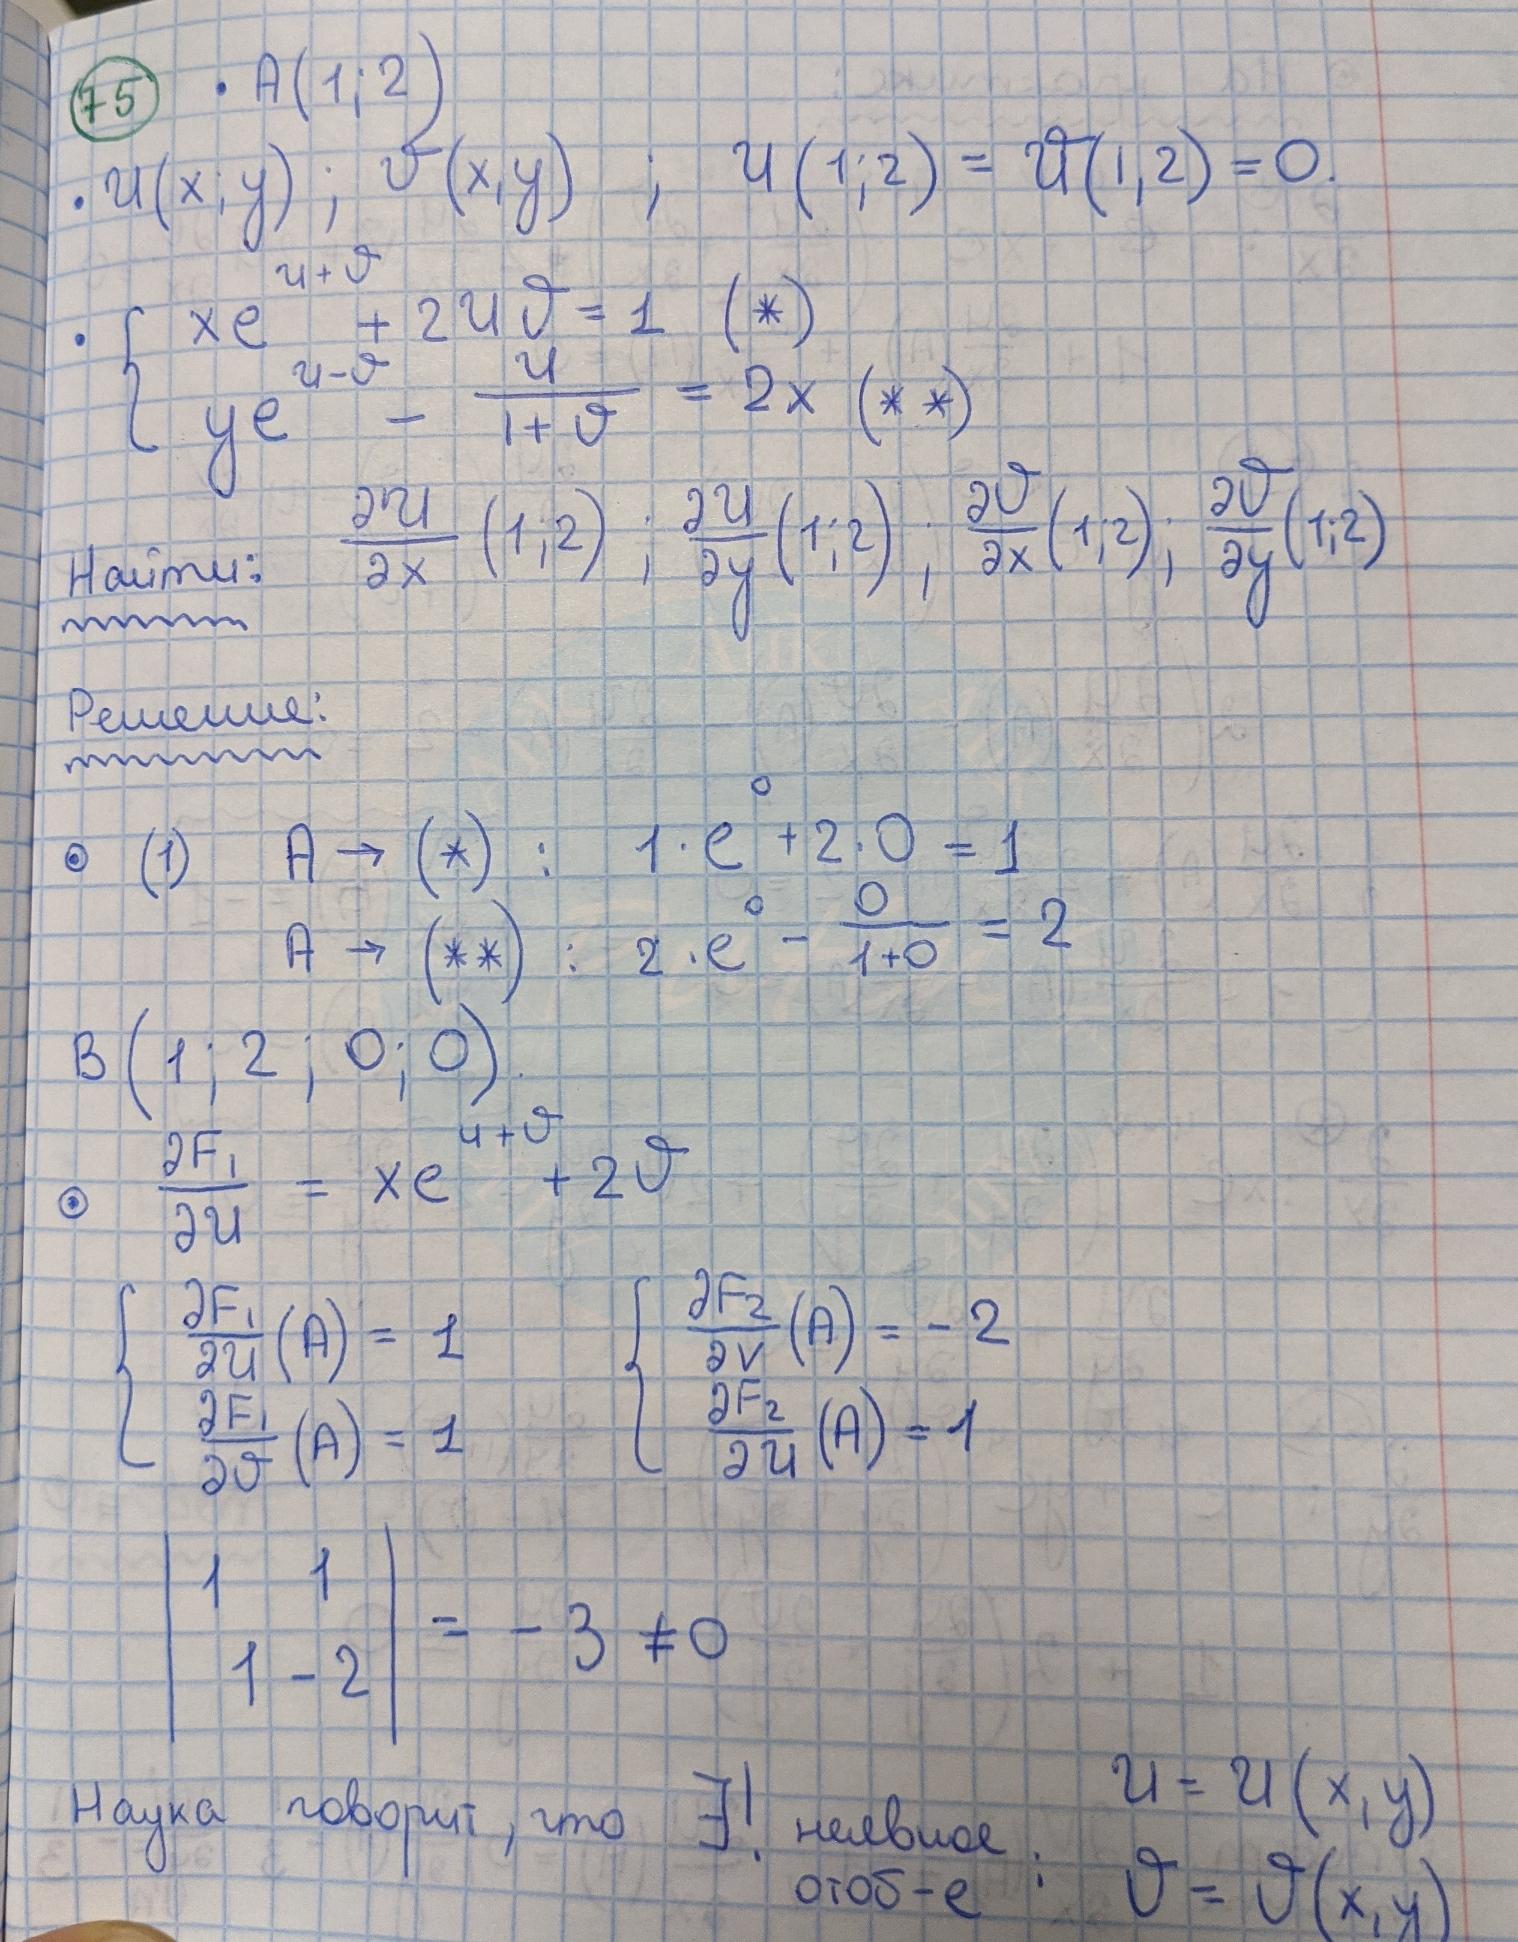 75 • A(1;2)
• u(x;y); v(x,y) ; u(1;2) = v(1,2) = 0.
• { xe^{u+v} + 2uv = 1 (*)
ye^{u-v} - u/(1+v) = 2x (**)
Найти: ∂u/∂x (1;2); ∂u/∂y (1;2); ∂v/∂x (1;2); ∂v/∂y (1;2)
Решение:
⊙ (1) A → (*) : 1·e^0 + 2·0 = 1
A → (**) : 2·e^0 - 0/(1+0) = 2
B(1;2;0;0).
⊙ ∂F₁/∂u = xe^{u+v} + 2v
{ ∂F₁/∂u (A) = 1 { ∂F₂/∂v (A) = -2
∂F₁/∂v (A) = 1 ∂F₂/∂u (A) = 1
| 1 1 |
| 1 -2 | = -3 ≠ 0
Наука говорит, что ∃! неявное отоб-е : u = u(x,y)
v = v(x,y)